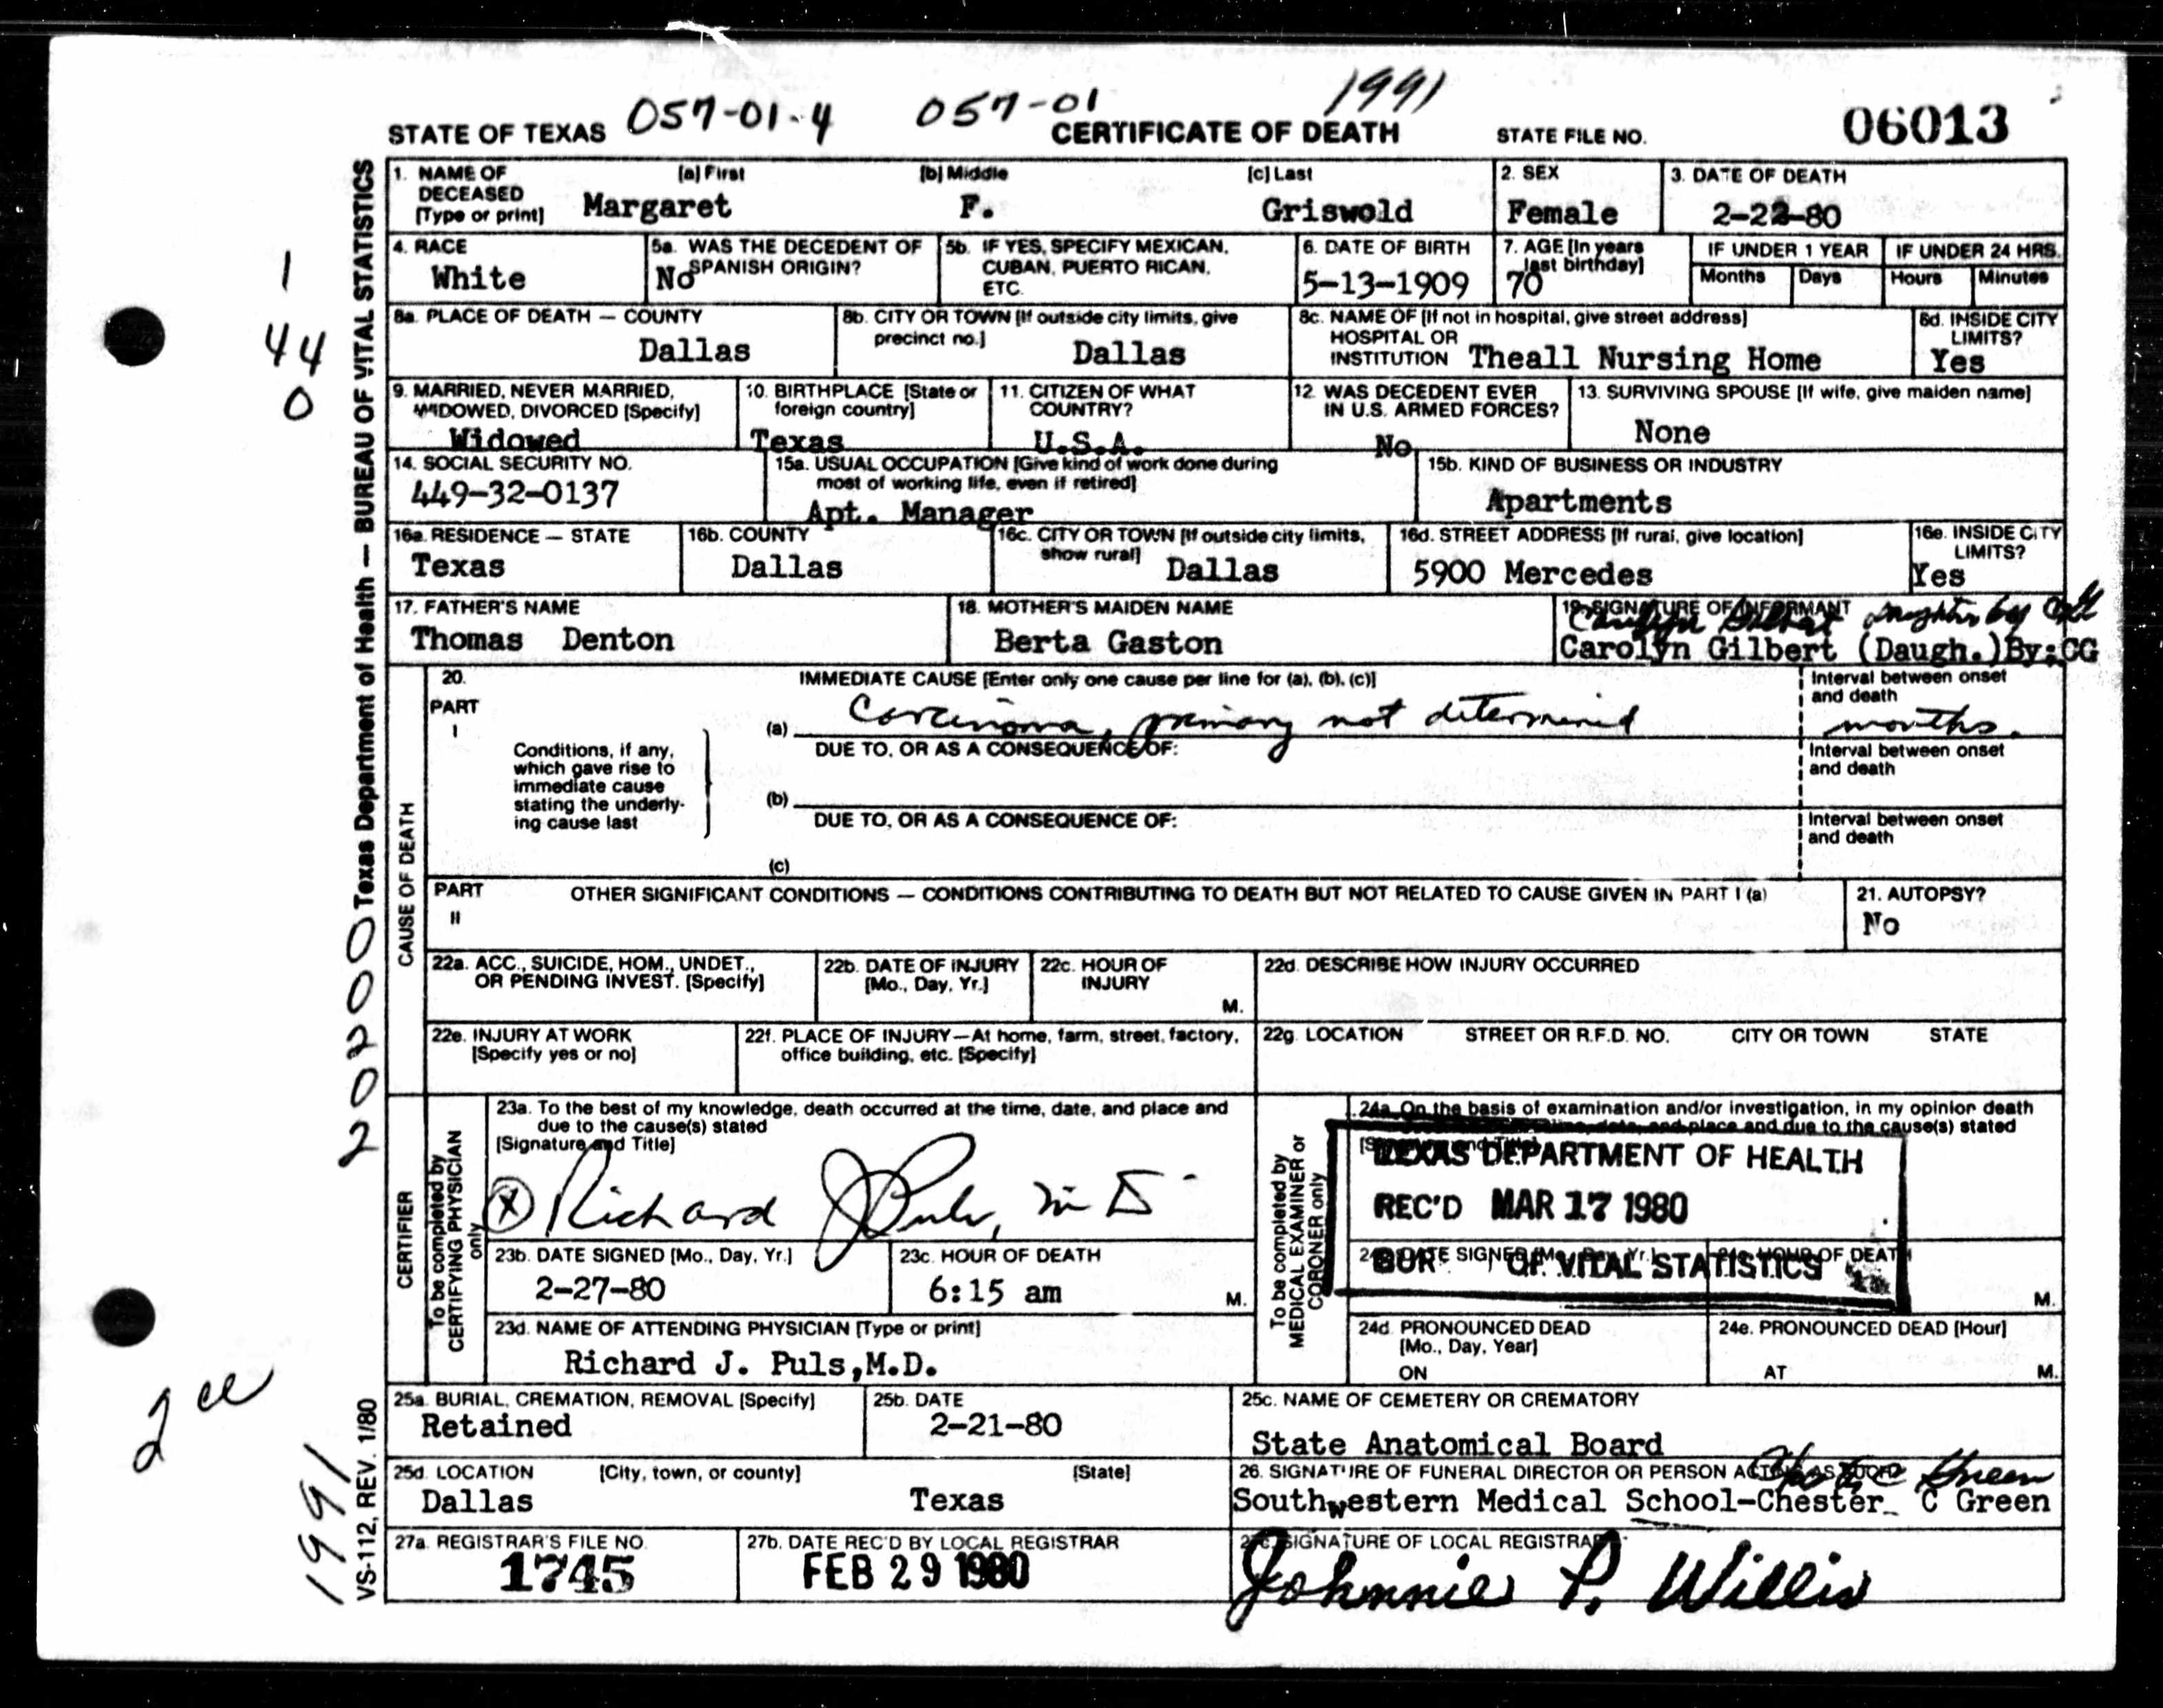 057-01-4 057-01 1991
STATE OF TEXAS CERTIFICATE OF DEATH STATE FILE NO. 06013
1. NAME OF DECEASED [Type or print] [a] First [b] Middle [c] Last 2. SEX 3. DATE OF DEATH
Margaret F. Griswold Female 2-22-80
4. RACE 5a. WAS THE DECEDENT OF SPANISH ORIGIN? 5b. IF YES, SPECIFY MEXICAN, CUBAN, PUERTO RICAN, ETC. 6. DATE OF BIRTH 7. AGE [In years last birthday] IF UNDER 1 YEAR IF UNDER 24 HRS.
Months Days Hours Minutes
White No 5-13-1909 70
8a. PLACE OF DEATH — COUNTY 8b. CITY OR TOWN [If outside city limits, give precinct no.] 8c. NAME OF [If not in hospital, give street address] HOSPITAL OR INSTITUTION 8d. INSIDE CITY LIMITS?
Dallas Dallas Theall Nursing Home Yes
9. MARRIED, NEVER MARRIED, WIDOWED, DIVORCED [Specify] 10. BIRTHPLACE [State or foreign country] 11. CITIZEN OF WHAT COUNTRY? 12. WAS DECEDENT EVER IN U.S. ARMED FORCES? 13. SURVIVING SPOUSE [If wife, give maiden name]
Widowed Texas U.S.A. No None
14. SOCIAL SECURITY NO. 15a. USUAL OCCUPATION [Give kind of work done during most of working life, even if retired] 15b. KIND OF BUSINESS OR INDUSTRY
449-32-0137 Apt. Manager Apartments
16a. RESIDENCE — STATE 16b. COUNTY 16c. CITY OR TOWN [If outside city limits, show rural] 16d. STREET ADDRESS [If rural, give location] 16e. INSIDE CITY LIMITS?
Texas Dallas Dallas 5900 Mercedes Yes
17. FATHER'S NAME 18. MOTHER'S MAIDEN NAME 19. SIGNATURE OF INFORMANT
Carolyn Gilbert daughter by
Thomas Denton Berta Gaston Carolyn Gilbert (Daugh.)By:CG
20. IMMEDIATE CAUSE [Enter only one cause per line for (a), (b), (c)] Interval between onset and death
PART I
(a) Carcinoma, primary not determined months.
Conditions, if any, which gave rise to immediate cause stating the underlying cause last
DUE TO, OR AS A CONSEQUENCE OF: Interval between onset and death
(b)
DUE TO, OR AS A CONSEQUENCE OF: Interval between onset and death
(c)
CAUSE OF DEATH
PART II OTHER SIGNIFICANT CONDITIONS — CONDITIONS CONTRIBUTING TO DEATH BUT NOT RELATED TO CAUSE GIVEN IN PART I (a) 21. AUTOPSY?
No
22a. ACC., SUICIDE, HOM., UNDET., OR PENDING INVEST. [Specify] 22b. DATE OF INJURY [Mo., Day, Yr.] 22c. HOUR OF INJURY M. 22d. DESCRIBE HOW INJURY OCCURRED
22e. INJURY AT WORK [Specify yes or no] 22f. PLACE OF INJURY—At home, farm, street, factory, office building, etc. [Specify] 22g. LOCATION STREET OR R.F.D. NO. CITY OR TOWN STATE
CERTIFIER
To be completed by CERTIFYING PHYSICIAN only
23a. To the best of my knowledge, death occurred at the time, date, and place and due to the cause(s) stated
[Signature and Title]
X Richard J Puls, M D
23b. DATE SIGNED [Mo., Day, Yr.] 23c. HOUR OF DEATH
2-27-80 6:15 am M.
23d. NAME OF ATTENDING PHYSICIAN [Type or print]
Richard J. Puls,M.D.
To be completed by MEDICAL EXAMINER or CORONER only
24a. On the basis of examination and/or investigation, in my opinion death
time, date, and place and due to the cause(s) stated
[Signature and Title]
TEXAS DEPARTMENT OF HEALTH
REC'D MAR 17 1980
BUR. OF VITAL STATISTICS
DATE SIGNED [Mo., Day, Yr.] HOUR OF DEATH
M.
24d. PRONOUNCED DEAD [Mo., Day, Year] 24e. PRONOUNCED DEAD [Hour]
ON AT M.
25a. BURIAL, CREMATION, REMOVAL [Specify] 25b. DATE 25c. NAME OF CEMETERY OR CREMATORY
Retained 2-21-80 State Anatomical Board
25d. LOCATION [City, town, or county] [State] 26. SIGNATURE OF FUNERAL DIRECTOR OR PERSON ACTING AS SUCH
Chester C Green
Dallas Texas Southwestern Medical School-Chester C Green
27a. REGISTRAR'S FILE NO. 27b. DATE REC'D BY LOCAL REGISTRAR 27c. SIGNATURE OF LOCAL REGISTRAR
1745 FEB 29 1980 Johnnie P. Willis
Texas Department of Health — BUREAU OF VITAL STATISTICS
VS-112, REV. 1/80
1
44
0
20200
2 cc
1991